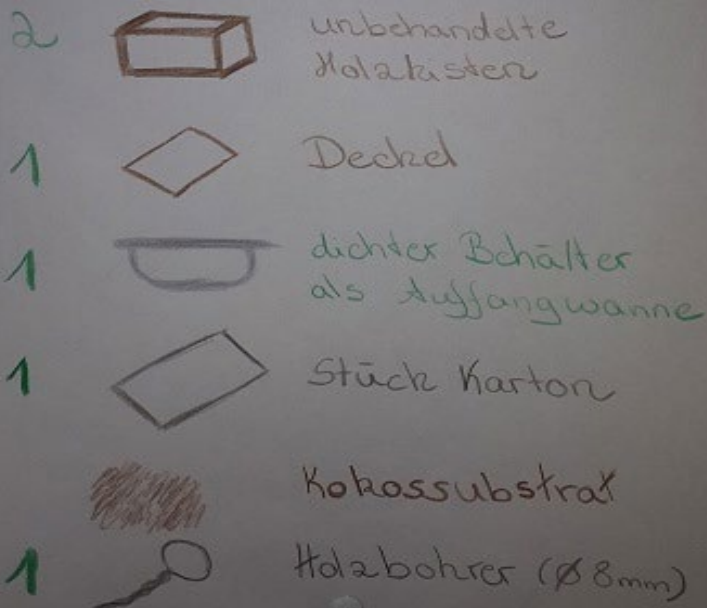 2 unbehandelte
Holzkisten
1 Deckel
1 dichter Behälter
als Auffangwanne
1 Stück Karton
Kokossubstrat
1 Holzbohrer (Ø 8mm)